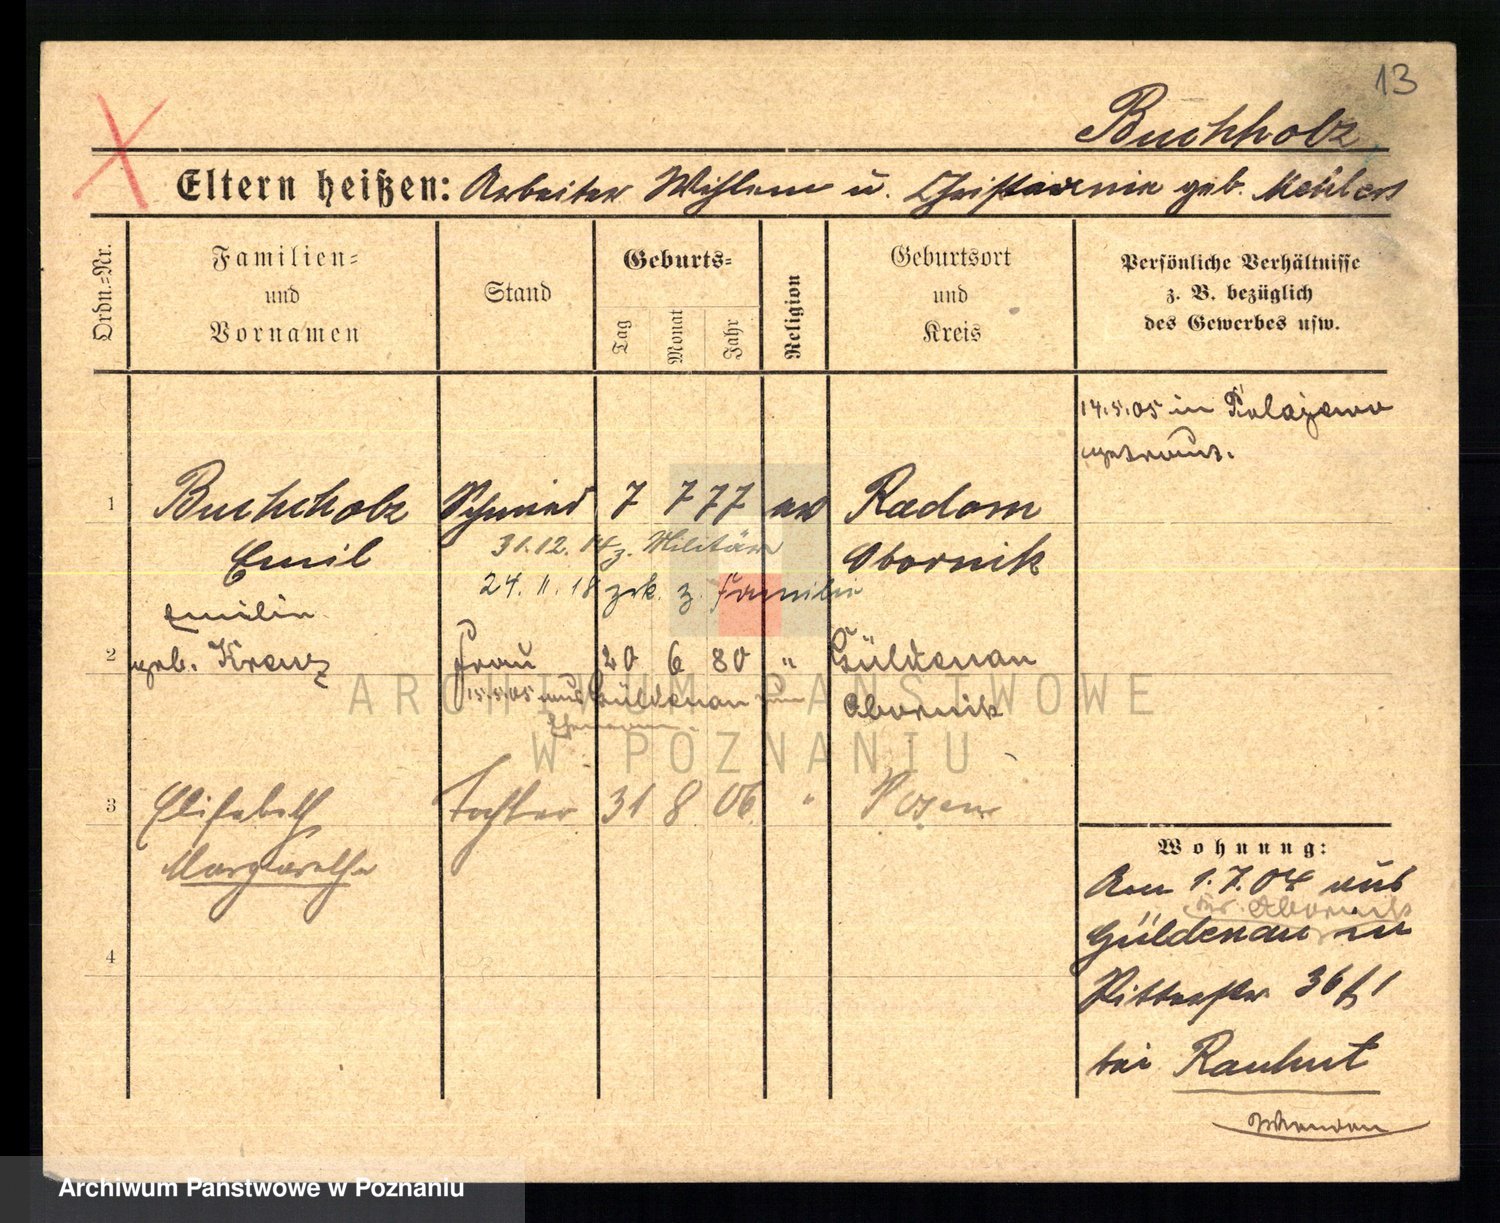 13
Buchholz
Eltern heißen: Arbeiter Wihlem u. geb.
Ordn.=Nr.
Familien=
und
Vornamen
Stand
Geburts=
Tag
Monat
Jahr
Religion
Geburtsort
und
Kreis
Persönliche Verhältnisse
z. B. bezüglich
des Gewerbes usw.
14.5.05 in Polajewo
getraut.
1 Buchholz Schmied 7 7 77 ev Radom
Emil Obornik
31.12.14 z. Militär
24. 11. 18 zrk. z. Familie
Emilie
2 geb. Krenz Frau 20 6 80 " Güldenau
Obornik
15/5/05 aus Güldenau zum
Ehemann.
3 Elisabeth Tochter 31 8 06 " Posen
Margarethe
4
Wohnung:
Am 1.7.04 aus
Kr. Obornik
Güldenau zu
Ritterstr. 36 I
bei Rauhut
ARCHIWUM PAŃSTWOWE
W POZNANIU
Archiwum Państwowe w Poznaniu